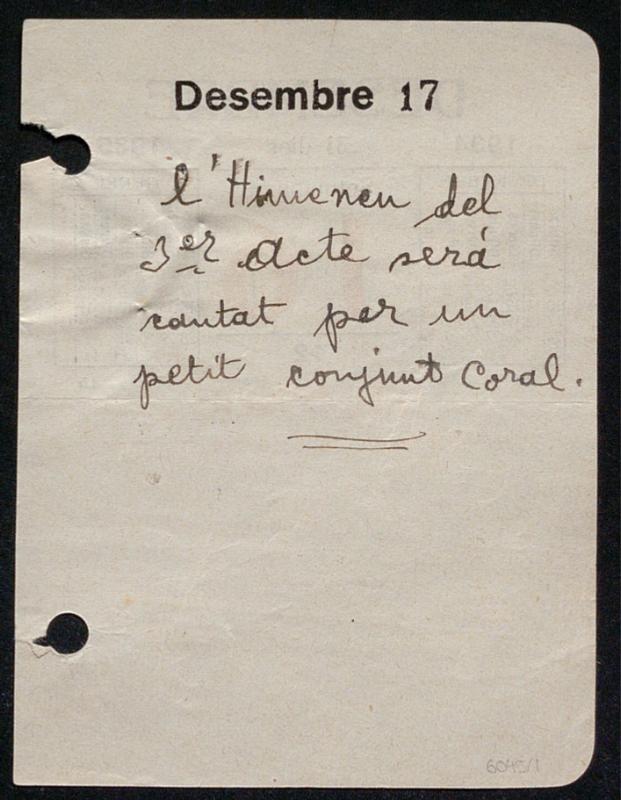 Desembre 17
l'Himeneu del
3er Acte será
cantat per un
petit conjunt Coral.
6045/1